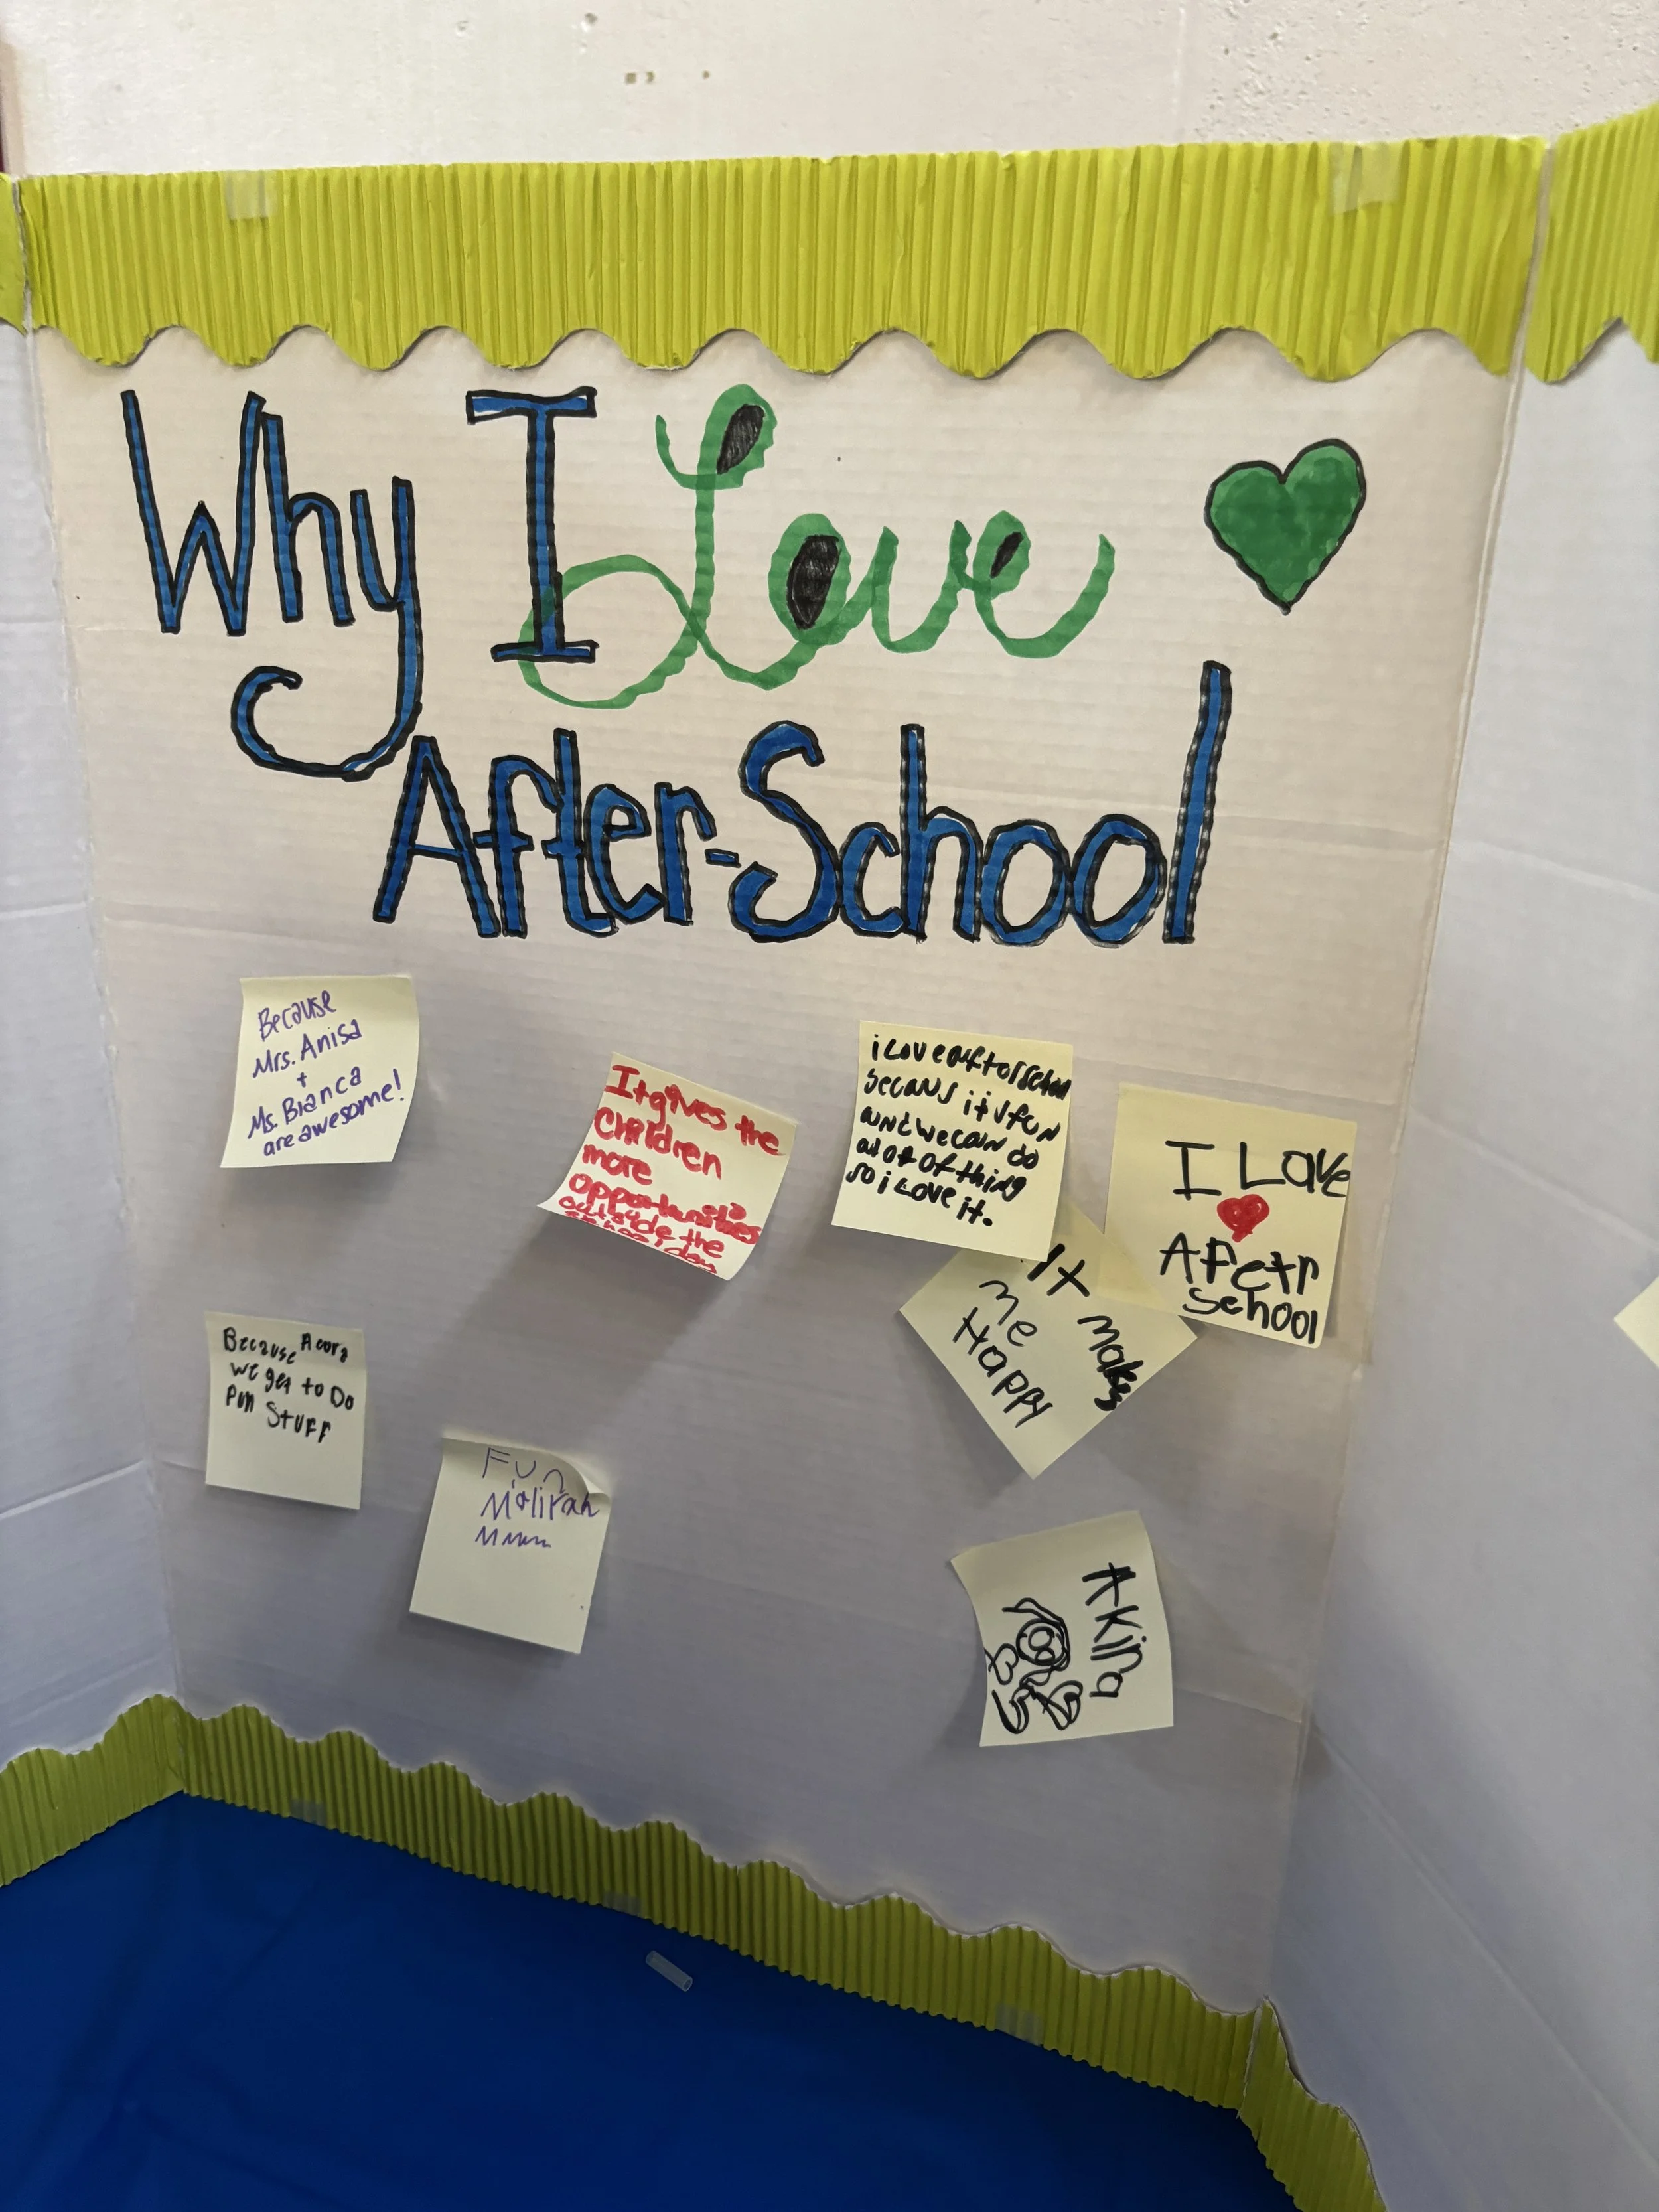 Why I Love
After-School
Because
Mrs. Anisa
+
Ms. Bianca
are awesome!
It gives the
Children
more
opportunities
outside the
school day
i love
becaus it is fun
and we can do
a lot of thing
so i love it.
I Love
Afetr
School
It makes
me
Happy
Because
we get to Do
Fun Stuff
Fun
Akina